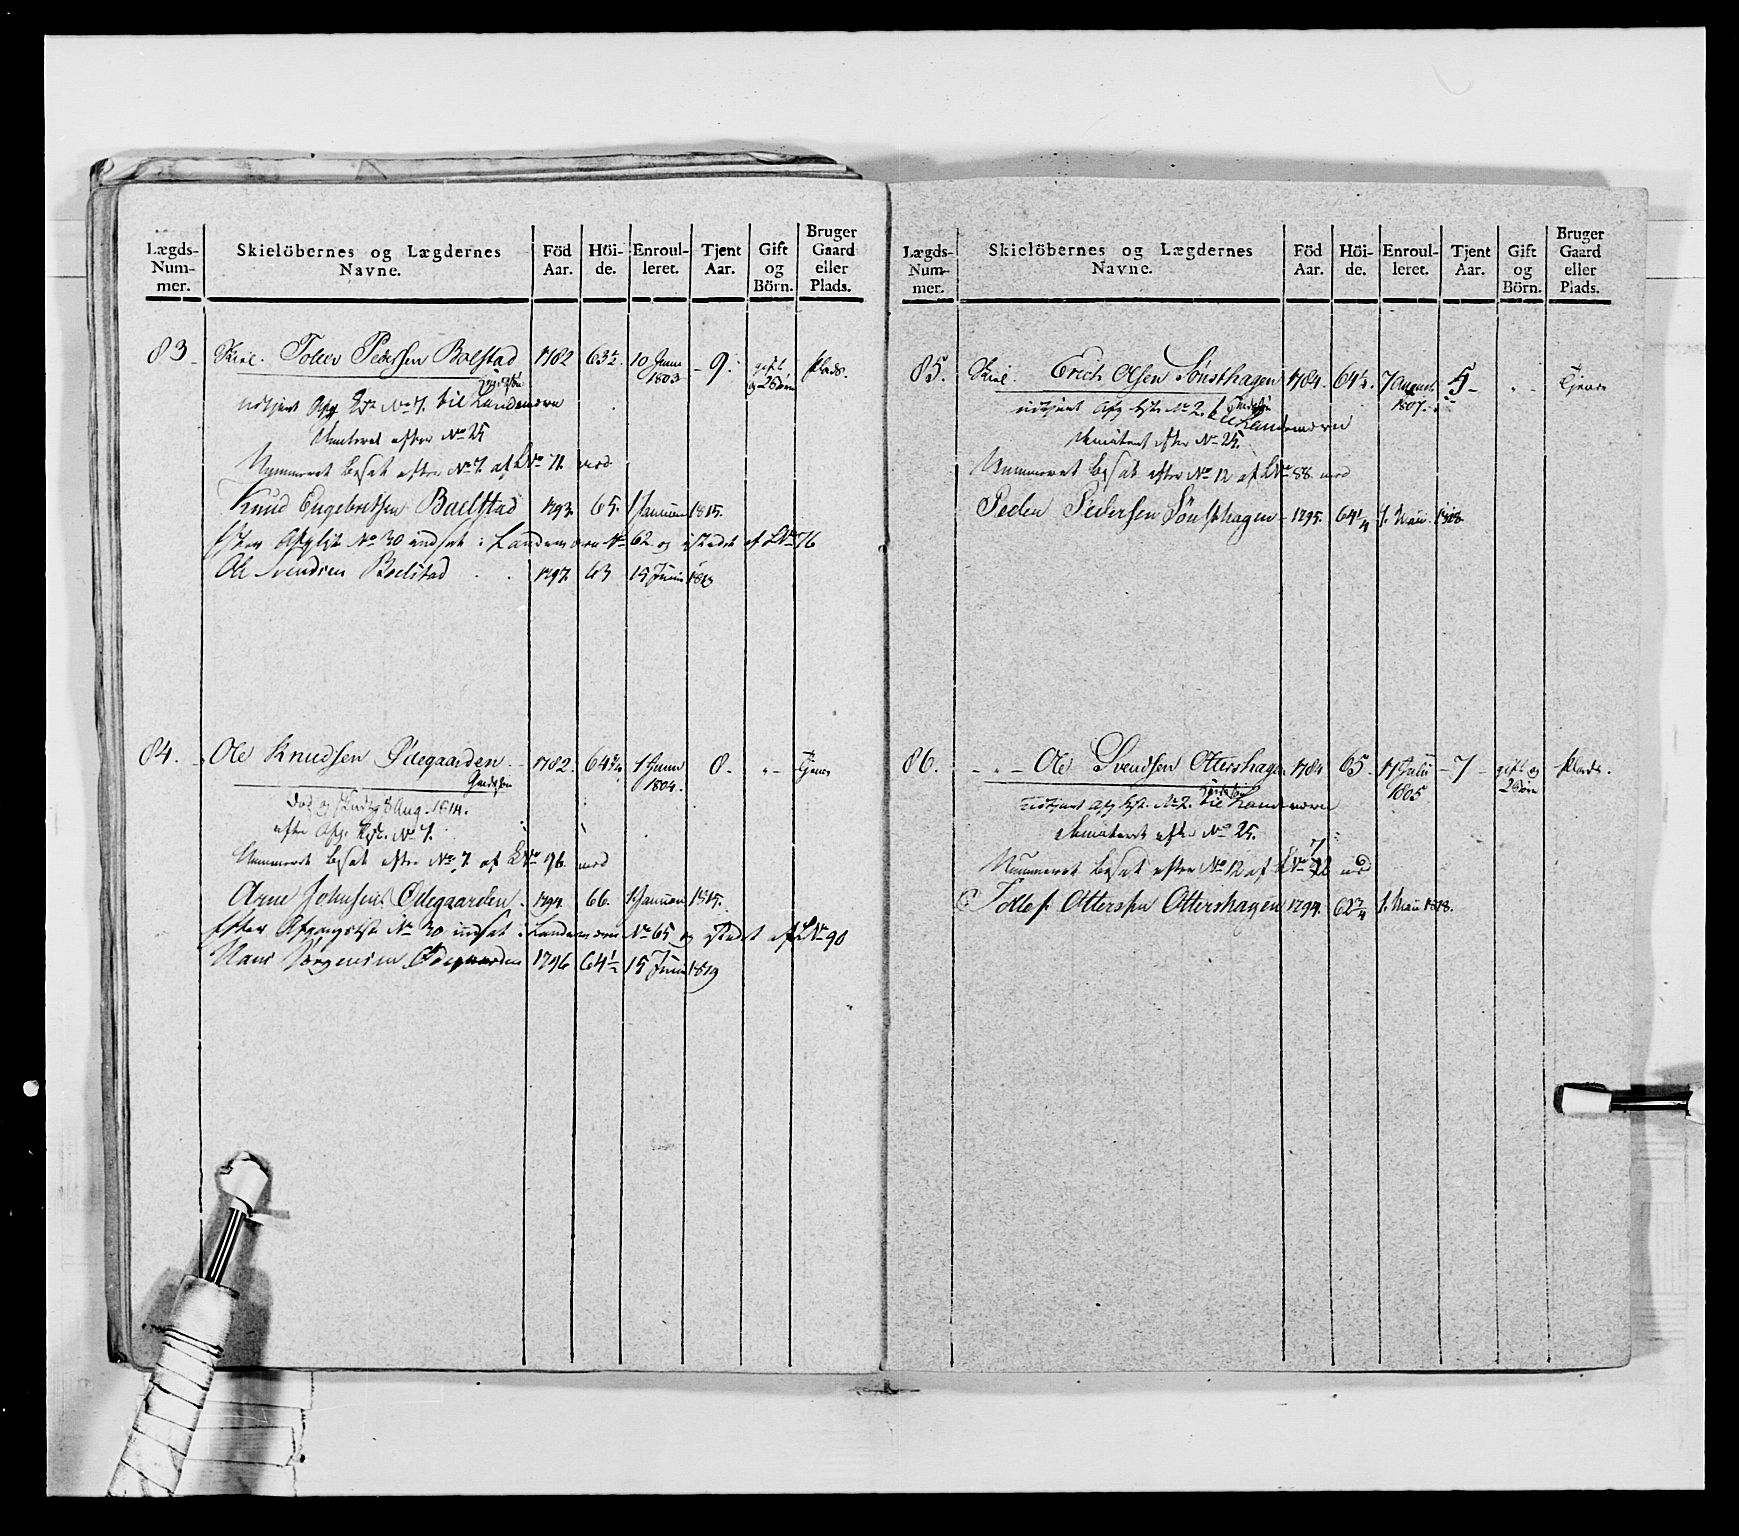 Lægds-Num-mer. Skielöbernes og Lægdernes Navne. Föd Aar. Höi-de. Enroul-leret. Tjent Aar. Gift og Börn. Bruger Gaard eller Plads.
83 Skiel. Peder­sen Bolstad 1782 63½ 10 Juni 1803 9. gift og 2 Börn Plads.
udtjent Afg. No 7. til Landeværn
efter No 25
Nummeret besat efter No 7. af LNo 71. med
Knud Engebretsen Baelstad 1793. 65. 1 Januari 1815.
Efter Afgglist No 30 indsat i Landeværn No 62 og istedet af LNo 76
Ole Svendsen Boelstad 1797. 63 15 Juni 1819
84. Ole Knudsen Ödegaarden 1782. 64¾ 1 Juni 1804. 8. " Tjener
Aug. 1814.
efter Afg. List. No 7.
Nummeret besat efter No 7. af LNo 96. med
Arne Johnsen Ödegaarden 1794. 66. 1 Januari 1815.
Efter Afgangslist No 30 indsat i Landeværn No 65 og istedet af LNo 90
Hans Jörgensen Ödegaarden 1796 64½ 15 Juni 1819
Lægds-Num-mer. Skielöbernes og Lægdernes Navne. Föd Aar. Höi-de. Enroul-leret. Tjent Aar. Gift og Börn. Bruger Gaard eller Plads.
85. Skiel. Erich Olsen Sönsthagen 1784. 64½ 7 August 1807. 5 " Tjener
udtjent Afg. List. No 2. til Landeværn
efter No 25.
Nummeret besat efter No 12 af LNo 88 med
Peder Pedersen Sönsthagen 1795. 64¼ 1. Mai 1818.
86. " Ole Svendsen Ottershagen 1784 65. 1 Julii 1805 7 gift og 2 Börn Plads.
udtjent Afg. List. No 2. til Landeværn
efter No 25.
Nummeret besat efter No 12 af LNo 72 med
Tollef Ottersen Ottershagen 1794. 62¾ 1. Mai 1818.